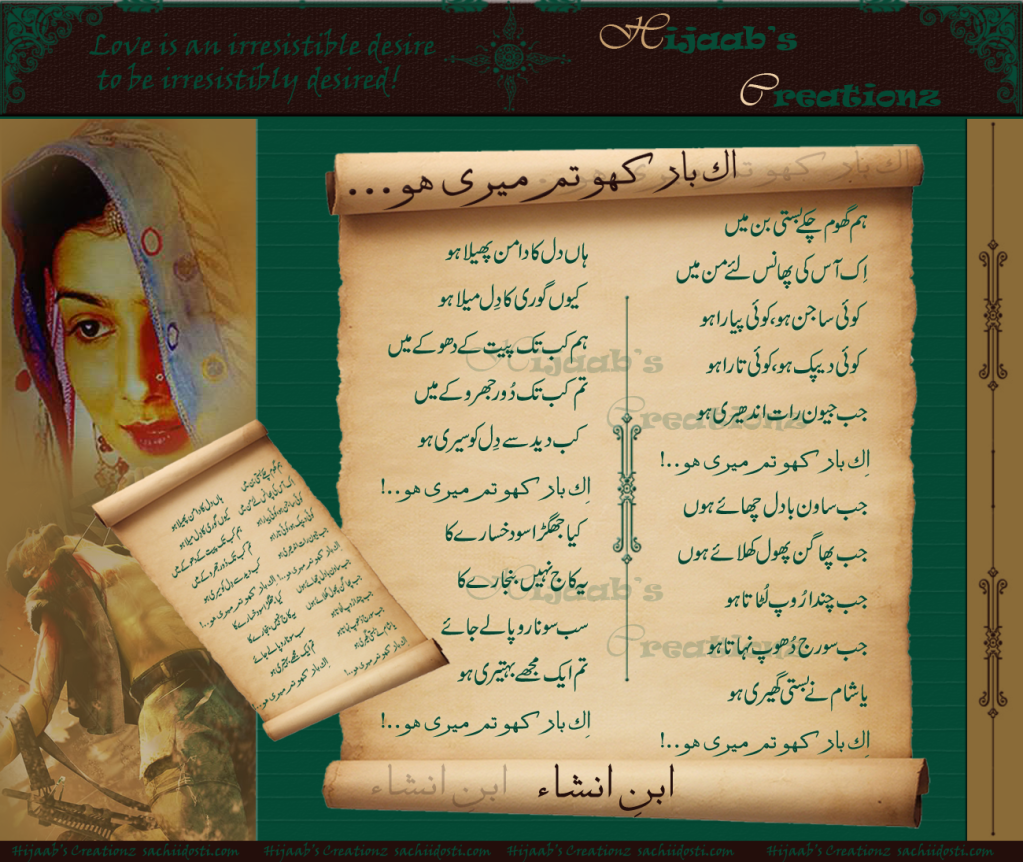 Love is an irresistible desire
to be irresistibly desired!
Hijaab's
Creationz
اک بار کہو تم میری ہو...
ہم گھوم چکے بستی بن میں
اِک آس کی پھانس لئے من میں
کوئی ساجن ہو، کوئی پیارا ہو
کوئی دیپک ہو، کوئی تارا ہو
جب جیون رات اندھیری ہو
اِک بار کہو تم میری ہو..!
جب ساون بادل چھائے ہوں
جب پھاگن پھول کھلائے ہوں
جب چندا رُوپ لُٹاتا ہو
جب سورج دُھوپ نہاتا ہو
یا شام نے بستی گھیری ہو
اِک بار کہو تم میری ہو..!
ہاں دل کا دامن پھیلا ہو
کیوں گوری کا دِل میلا ہو
ہم کب تک پیت کے دھوکے میں
تم کب تک دُور جھروکے میں
کب دید سے دِل کو سیری ہو
اِک بار کہو تم میری ہو..!
کیا جھگڑا سود خسارے کا
یہ کاج نہیں بنجارے کا
سب سونا روپا لے جائے
تم ایک مجھے بہتیری ہو
اِک بار کہو تم میری ہو..!
ابنِ انشاء
ابنِ انشاء
Hijaab's
Creationz
Hijaab's
Creationz
Hijaab's Creationz sachiidosti.com Hijaab's Creationz sachiidosti.com Hijaab's Creationz sachiidosti.com Hijaab's Creationz sachiidosti.com